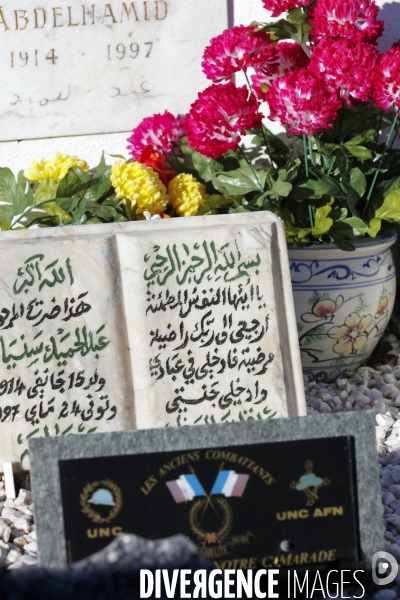 ABDELHAMID
1914 1997
عبد
بسم الله الرحمن الرحيم
يا ايتها النفس المطمئنة
ارجعي الى ربك راضية
مرضية فادخلي في عبادي
وادخلي جنتي
الله اكبر
هذا ضريح
عبد الحميد
ولد 15 جانفي 1914
توفي 24 ماي 1997
LES ANCIENS COMBATTANTS
UNC
UNC AFN
NOTRE CAMARADE
DIVERGENCE IMAGES